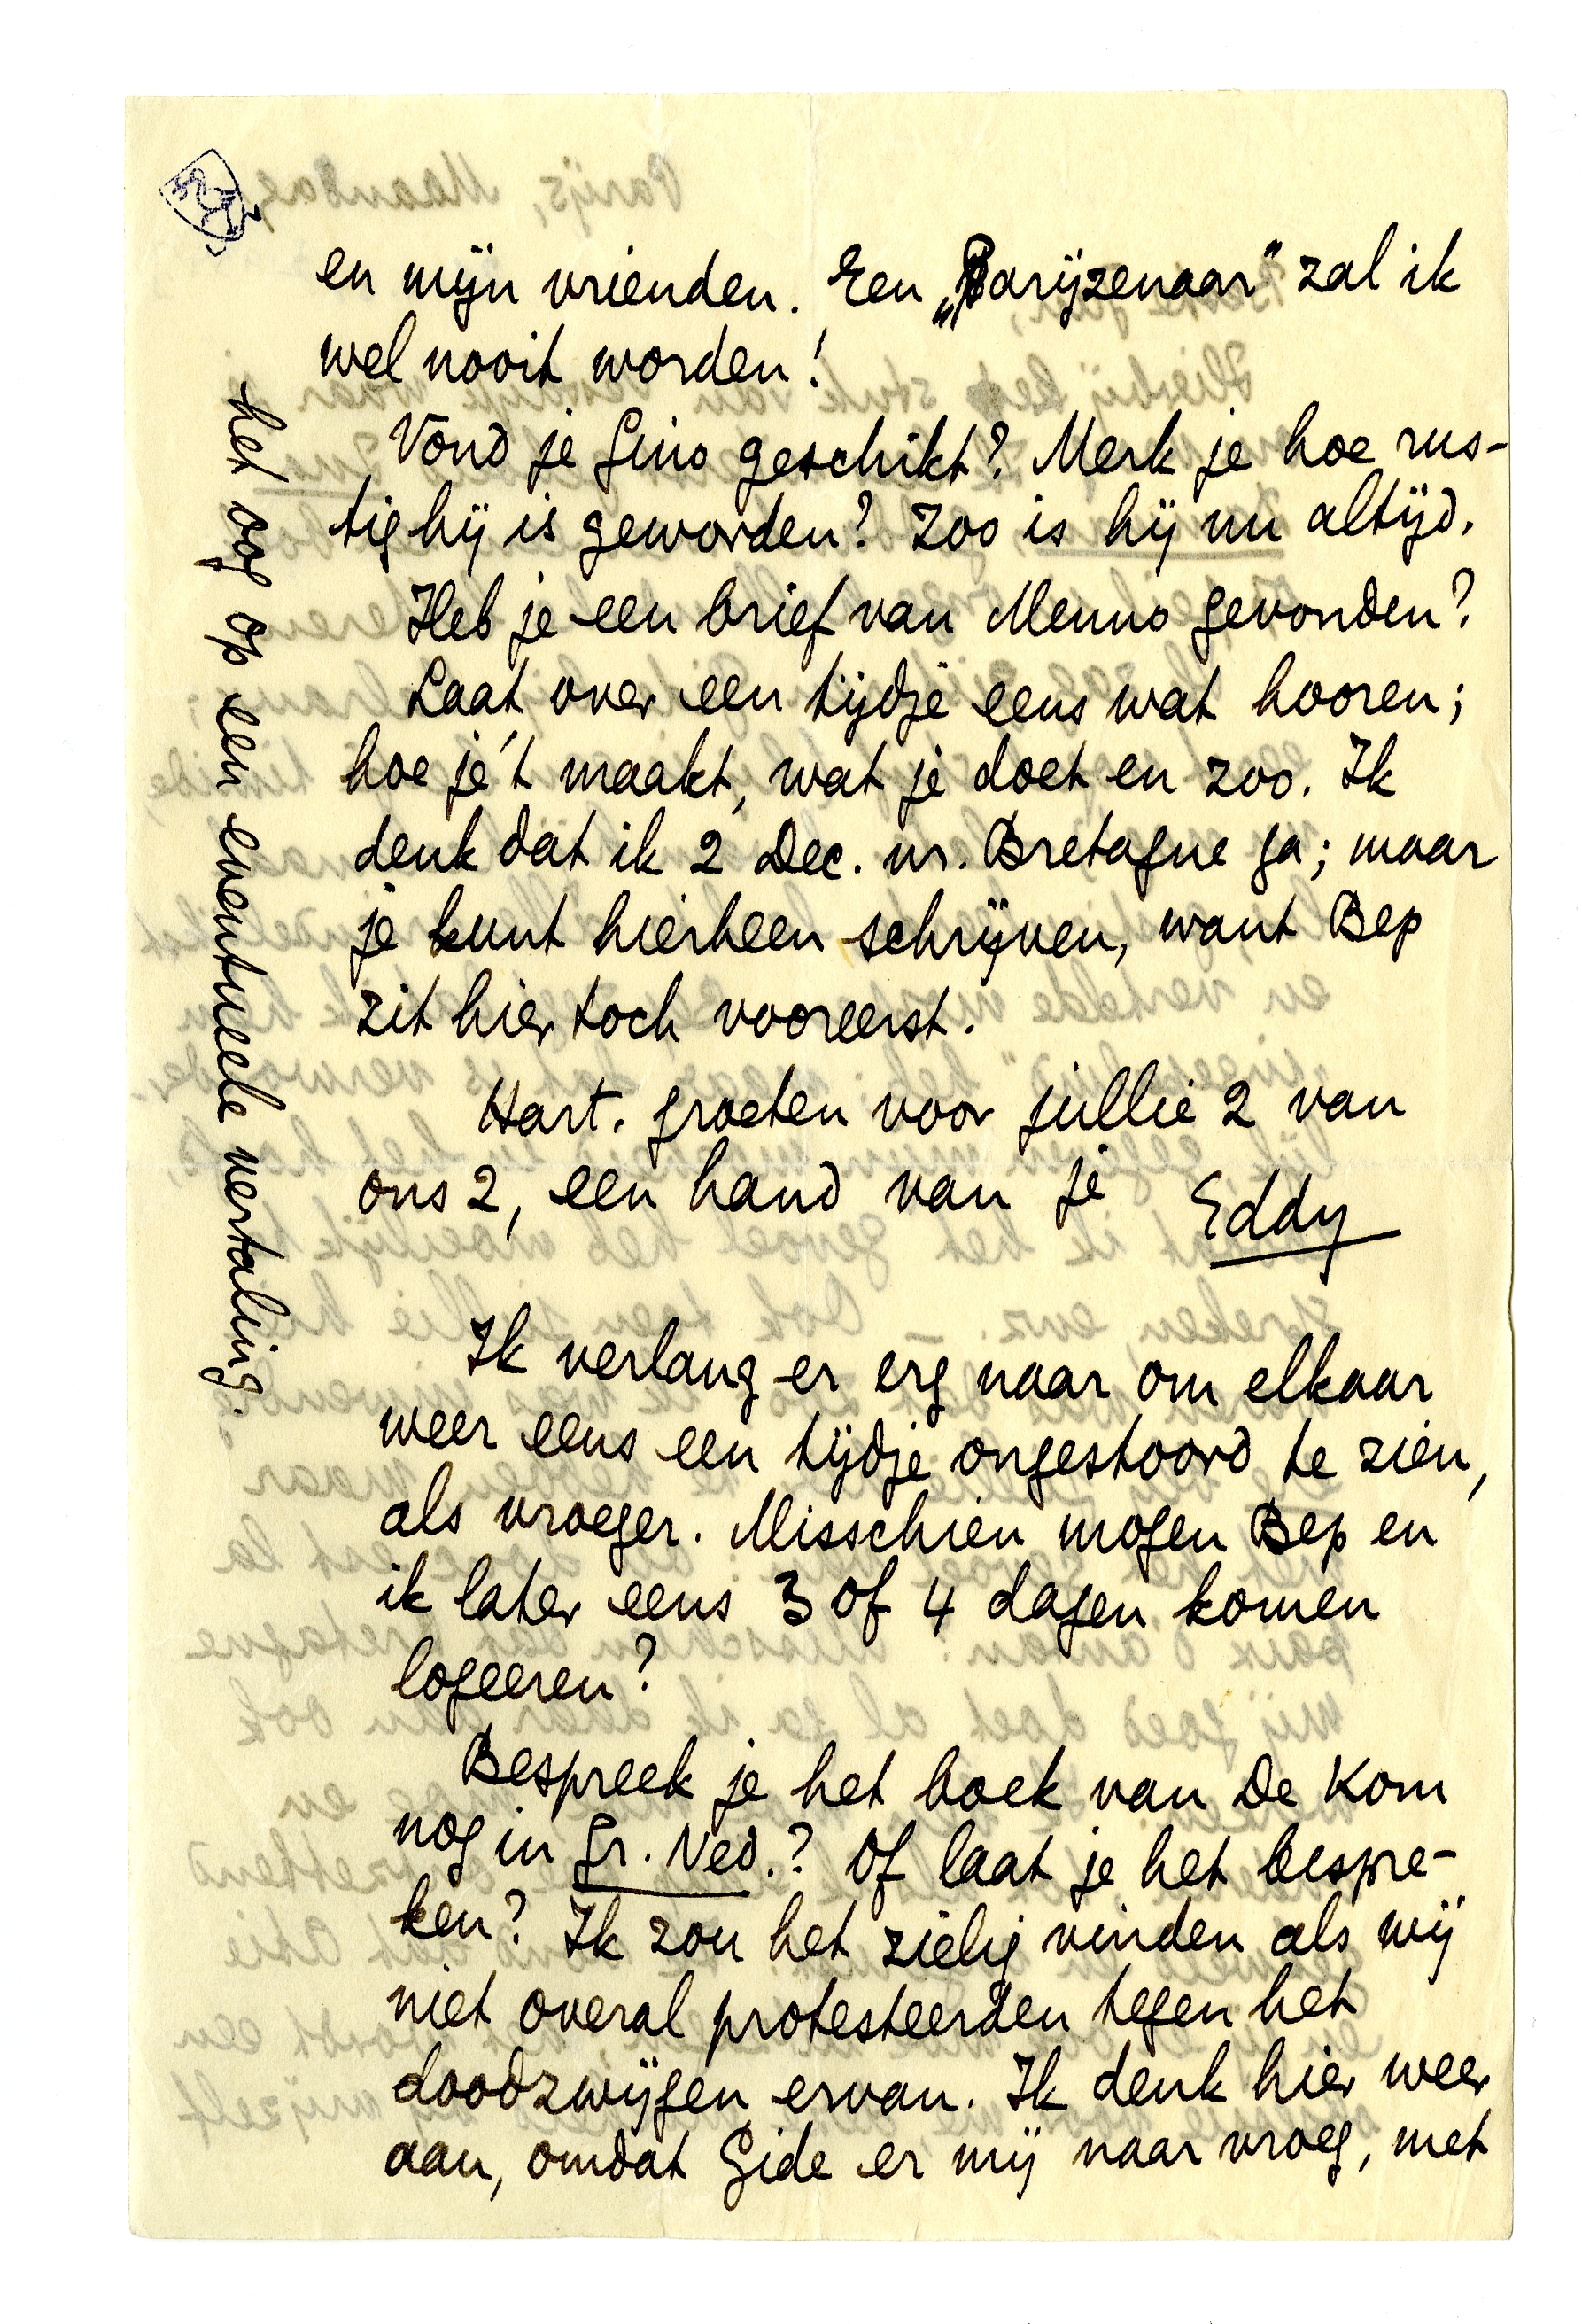 en mijn vrienden. Een „Parijzenaar” zal ik
wel nooit worden!
Vond je Gino geschikt? Merk je hoe rus-
tig hij is geworden? Zoo is hij nu altijd.
Heb je een brief van Menno gevonden?
Laat over een tijdje eens wat hooren;
hoe je 't maakt, wat je doet en zoo. Ik
denk dat ik 2 Dec. nr. Bretagne ga; maar
je kunt hierheen schrijven, want Bep
zit hier toch vooreerst.
Hart. groeten voor jullie 2 van
ons 2, een hand van je Eddy
Ik verlang er erg naar om elkaar
weer eens een tijdje ongestoord te zien,
als vroeger. Misschien mogen Bep en
ik later eens 3 of 4 dagen komen
logeeren?
Bespreek je het boek van De Kom
nog in Gr. Ned.? Of laat je het bespre-
ken? Ik zou het zielig vinden als wij
niet overal protesteerden tegen het
doodzwijgen ervan. Ik denk hier weer
aan, omdat Gide er mij naar vroeg, met
het oog op een eventueele vertaling.